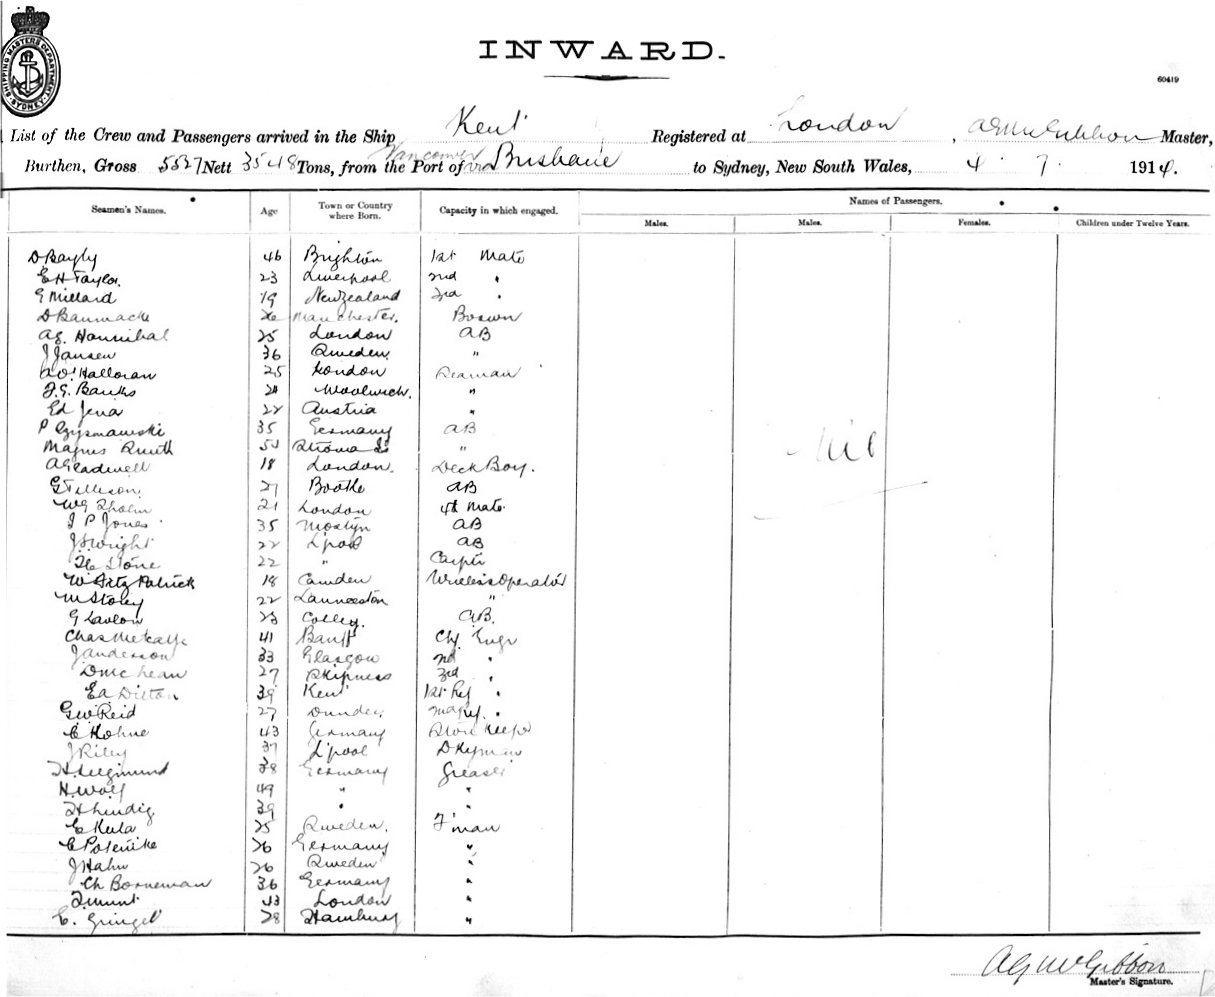 SHIPPING MASTERS DEPARTMENT SYDNEY
INWARD.
60419
List of the Crew and Passengers arrived in the Ship Kent Registered at London, AG McGibbon Master,
Burthen, Gross 5527 Nett 3548 Tons, from the Port of Vancouver via Brisbane to Sydney, New South Wales, 4 . 7 . 1914.
Seamen's Names. Age Town or Country where Born. Capacity in which engaged. Names of Passengers.
Males. Males. Females. Children under Twelve Years.
D Bayly 46 Brighton 1st Mate
E H Taylor. 23 Liverpool 2nd "
G Millard 19 New Zealand 3rd "
D 26 Manchester. Bosun
AG. Hannibal 25 London AB
J Jansen 36 Sweden "
A O'Halloran 25 London Seaman
F.G. Banks 21 Woolwich. "
Ed Jena 22 Austria "
P 35 Germany AB
Magnus 51 "
A Gladwell 18 London. Deck Boy.
27 Bootle AB
WG 21 London 4th Mate
J P Jones 35 Mostyn AB
J. Wright 22 L'pool AB
Stone 22 " Carptr
W Fitz Patrick 18 Camden Wireless Operator
M Stoley 22 Launceston "
G 23 AB.
Chas Metcalfe 41 Banff Chf Engr
J Anderson 33 Glasgow 2nd "
D McLean 27 Skipness 3rd "
Ed Dixton 39 Kent 1st Ref "
G W Reid 27 Dundee 2nd Ref. "
C Kohne 43 Germany Store Keeper
J Riley 37 L'pool Dkyman
H. Siegmund 38 Germany Greaser
H. Wolf 49 " "
H Lindig 39 " "
C Kula 25 Sweden. F'man
26 Germany "
J Hahn 26 Sweden "
Ch Borneman 36 Germany "
43 London "
C. Gringel 28 Hamburg "
Nil
AG McGibbon
Master's Signature.